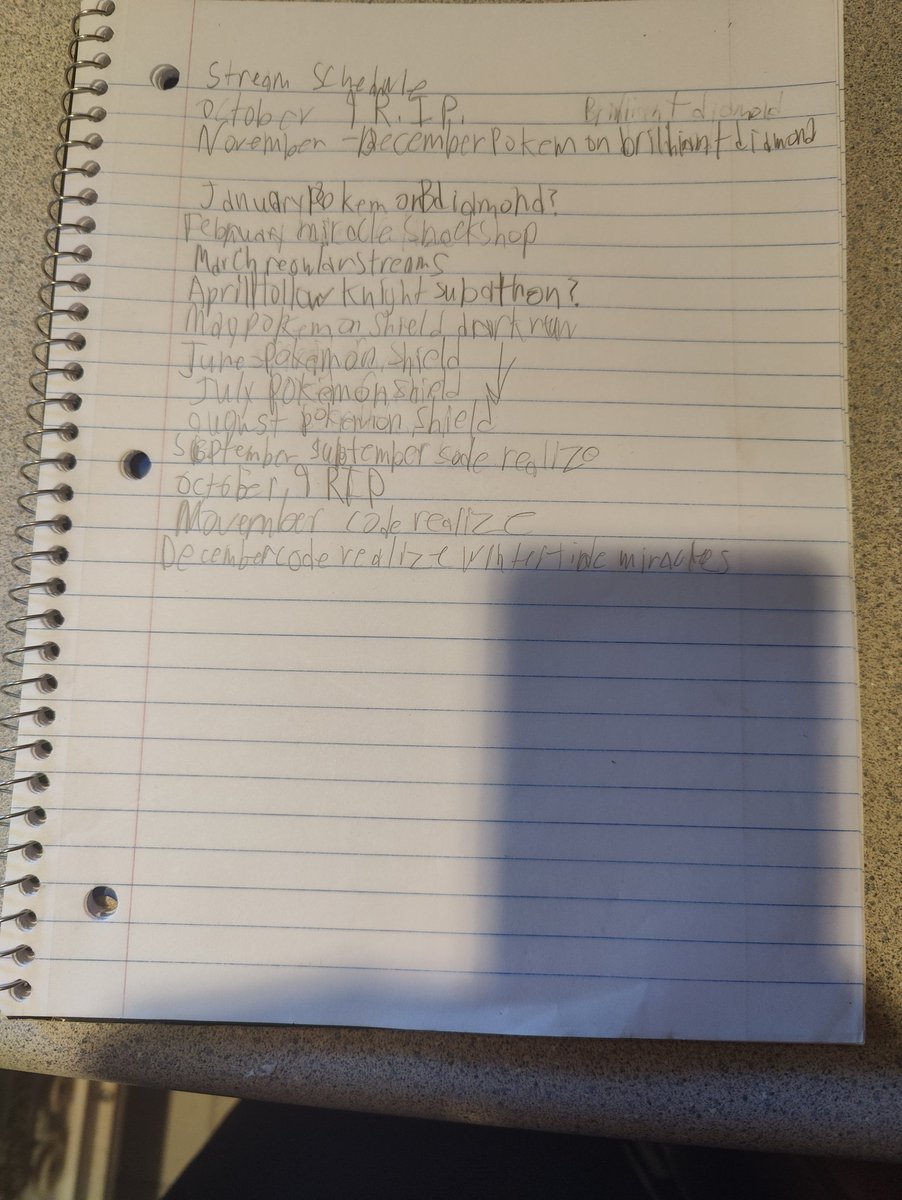 Stream Schedule
October 9 R.I.P. Brilliant diamond
November - December Pokemon brilliant diamond
January Pokemon Bdiamond?
February miracle Snackshop
March regular streams
April Hollow Knight subathon?
May pokemon shield
June pokemon shield
July pokemon shield
august pokemon shield
September subtember code realize
october, 9 RIP
November code realize
December code realize wintertide miracles